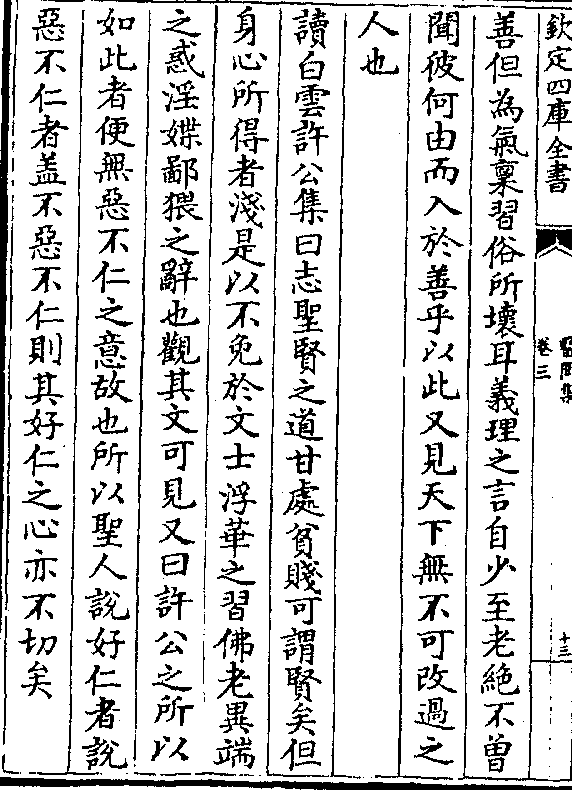 欽定四庫全書
醫閭集
卷三
十三
善但為氣稟習俗所壞耳義理之言自少至老絶不曾
聞彼何由而入於善乎以此又見天下無不可改過之
人也
讀白雲許公集曰志聖賢之道甘處貧賤可謂賢矣但
身心所得者淺是以不免於文士浮華之習佛老異端
之惑淫媟鄙猥之辭也觀其文可見又曰許公之所以
如此者便無惡不仁之意故也所以聖人說好仁者說
惡不仁者盖不惡不仁則其好仁之心亦不切矣